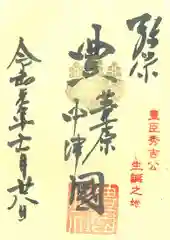 弥栄
豊葦原
中津國
令和元年 月廿八日
豊臣秀吉公
生誕之地